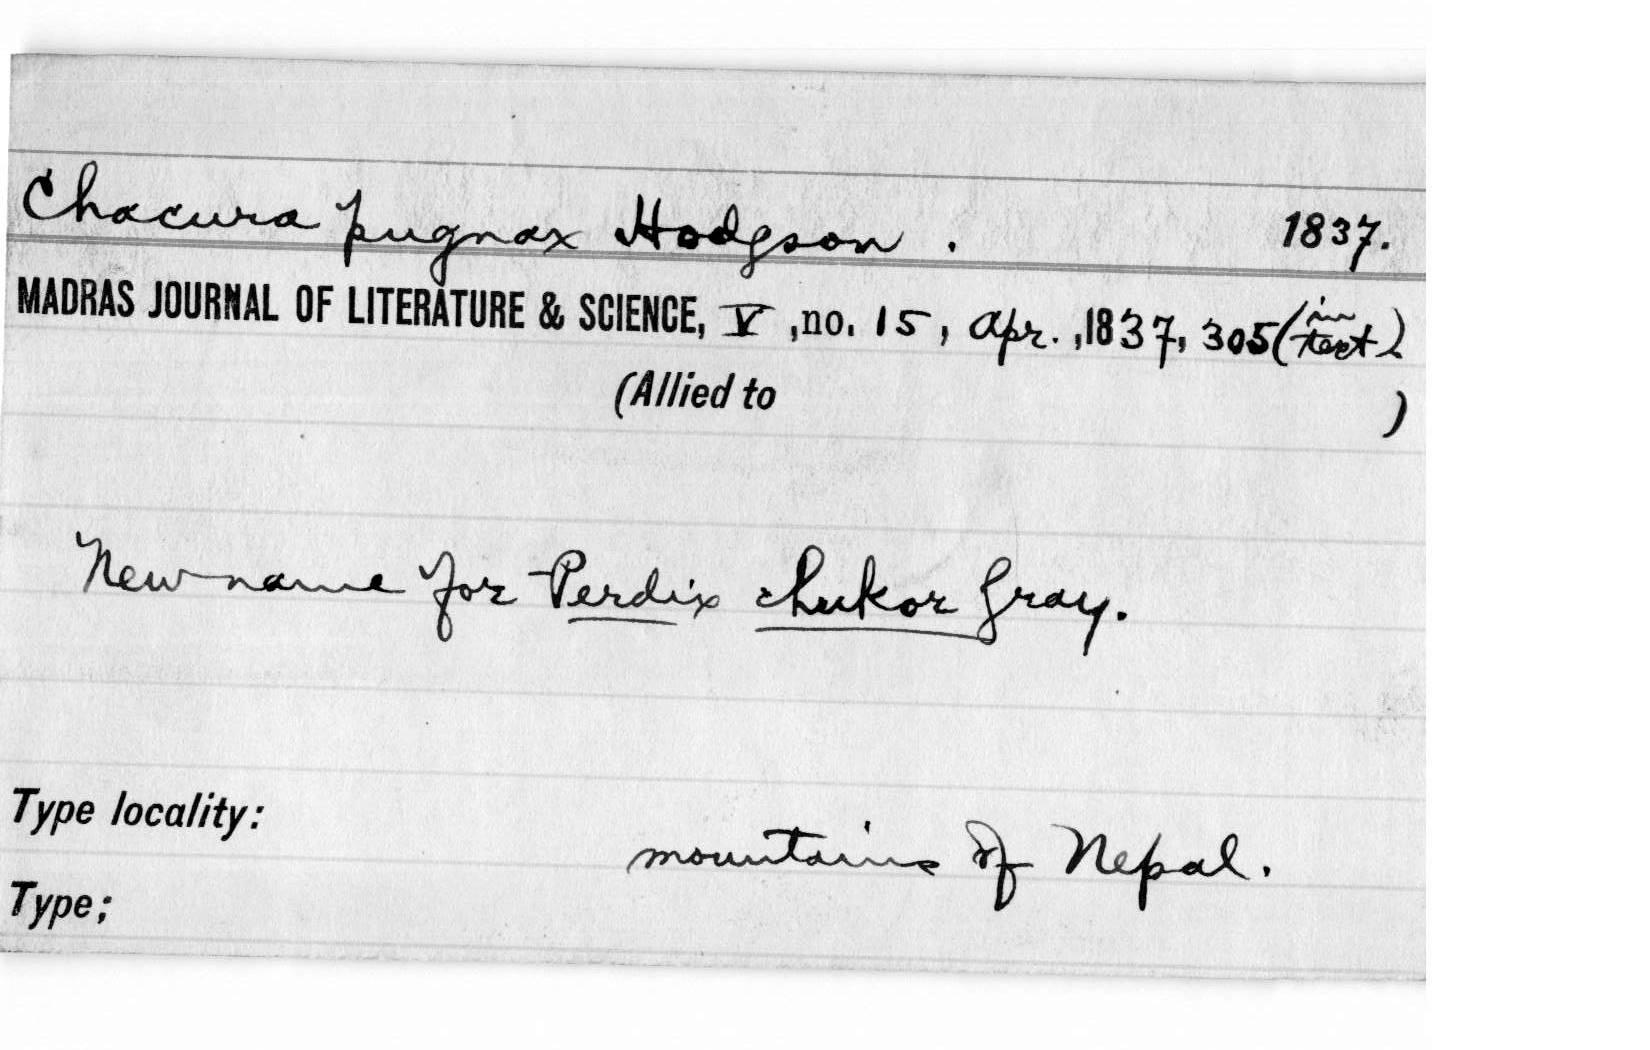 Chacura pugnax Hodgson . 1837.
MADRAS JOURNAL OF LITERATURE & SCIENCE, V ,no. 15, Apr. ,1837, 305 (in text)
(Allied to )
New name for Perdix chukor Gray.
Type locality:
mountains of Nepal.
Type;